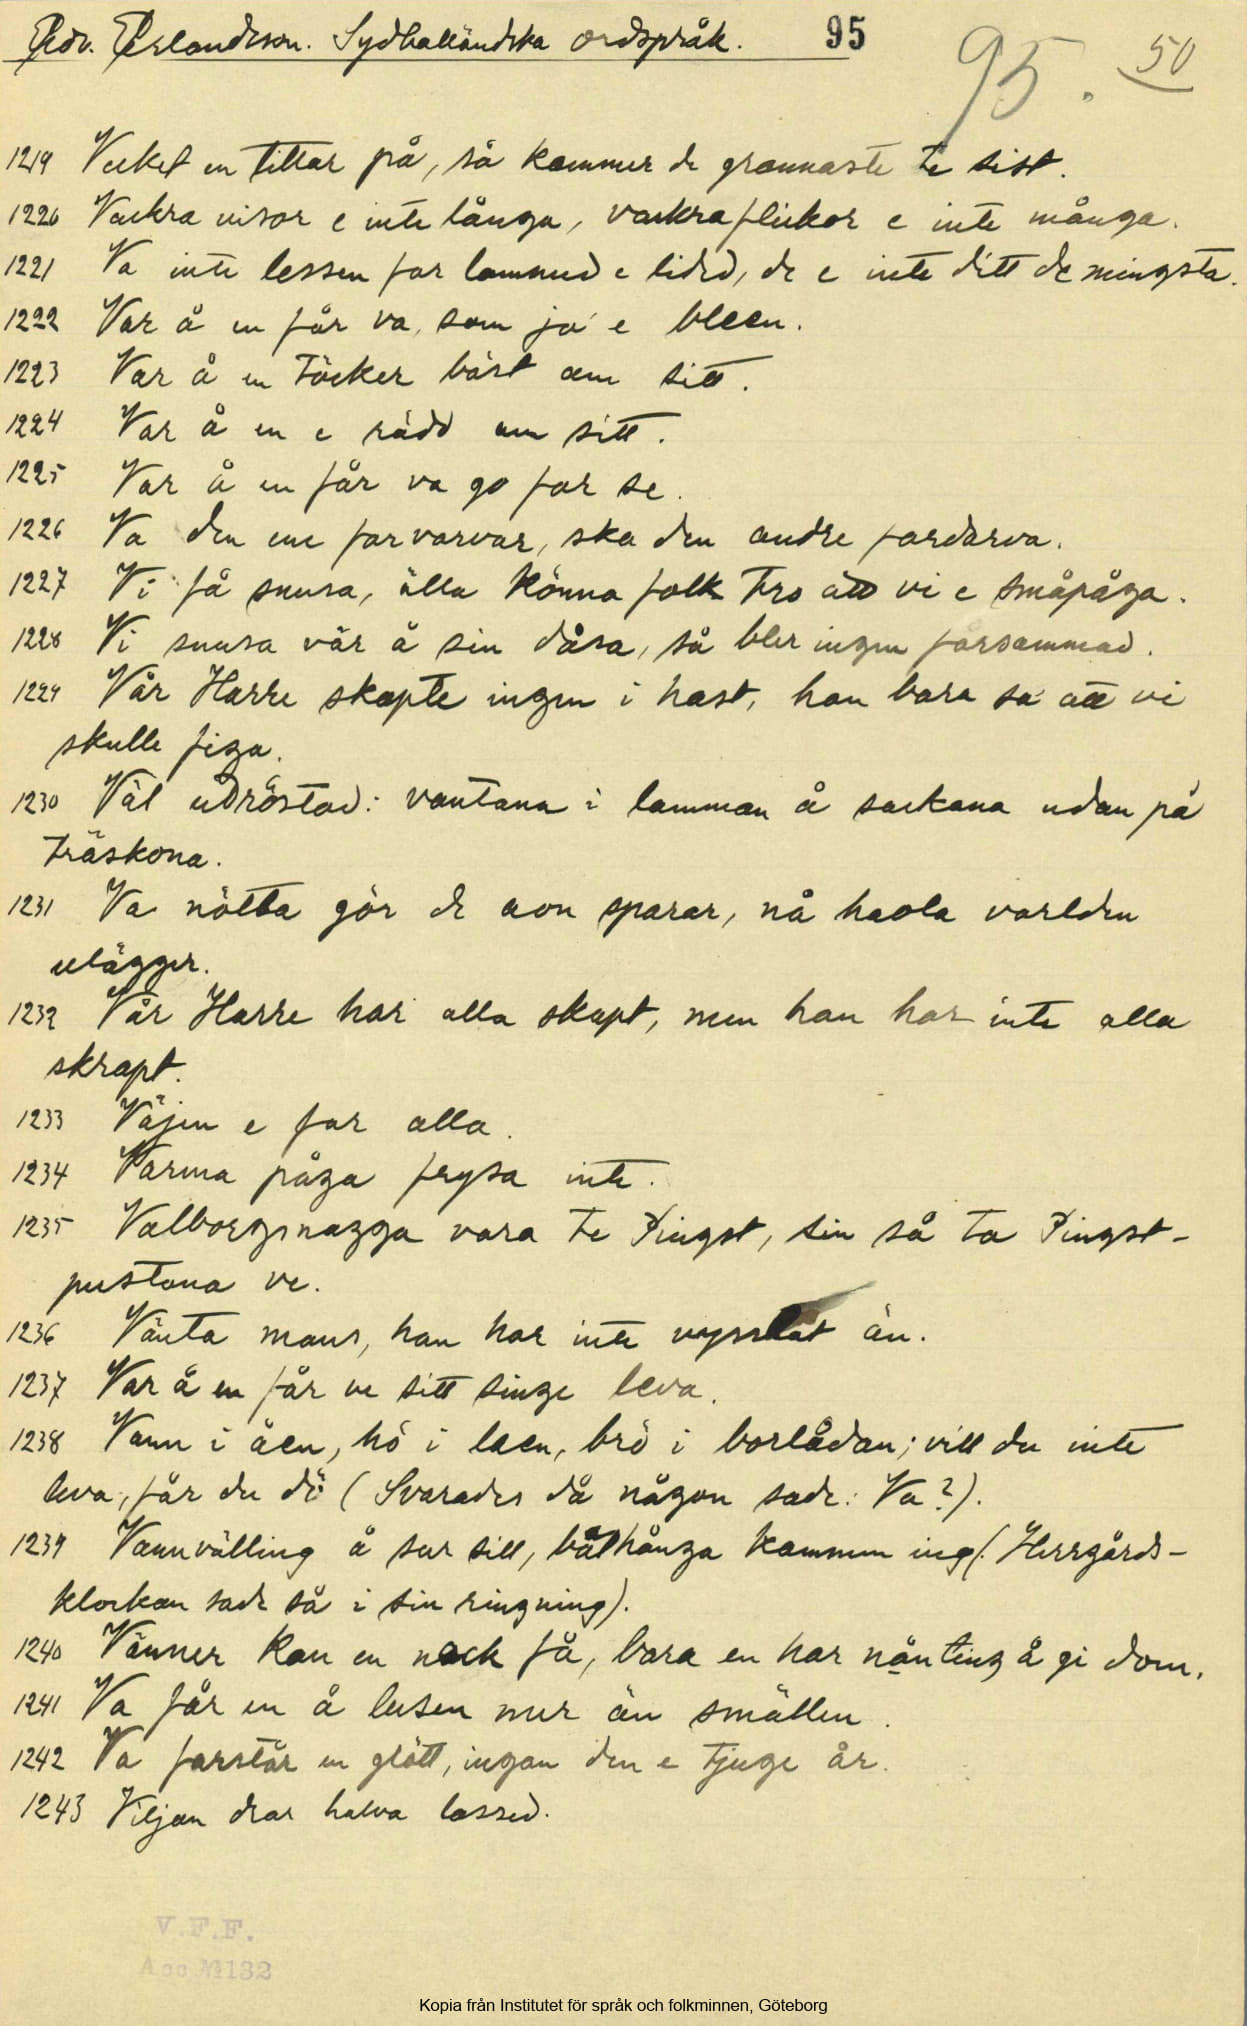 Edv. Erlandsson. Sydhalländska ordspråk. 95 95. 50
1219 Vecket en tittar på, så kommer de grannaste te sist.
1220 Vackra visor e inte långa, vackra flickor e inte många.
1221 Va inte lessen for lammed e lided, de e inte ditt de mingsta.
1222 Var å en får va, som ja e bleen.
1223 Var å en töcker bäst om sitt.
1224 Var å en e rädd um sitt.
1225 Var å en får va go for se.
1226 Va den ene forvarvar, ska den andre fordärva.
1227 Vi få snusa, älla könna folk tro att vi e småpåga.
1228 Vi snusa vär å sin dåsa, så bler ingen försammad.
1229 Vår Harre skapte ingen i hast, han bara sa att vi
skulle figa.
1230 Väl udröstad: vantana i lamman å sackana udan på
träskona.
1231 Va nötta gör de aon sparar, nå haola varlden
elägger.
1232 Vår Harre har alla skapt, men han har inte alla
skrapt.
1233 Väjen e for alla.
1234 Varma påga frysa inte.
1235 Valborgsnagga vara te Pingst, sin så ta Pingst-
pustana ve.
1236 Vänta mans, han har inte vysslat än.
1237 Var å en får ve sitt singe leva.
1238 Vann i åen, hö i laen, brö i borlådan; vill du inte
leva, får du dö (Svarades då någon sade: Va?).
1239 Vannvälling å sur sill, båthånga kammen ing (Herrgårds-
klockan sade så i sin ringning).
1240 Vänner kan en nock få, bara en har nånting å gi dom.
1241 Va får en å lusen mer än smällen.
1242 Va farstår en glött, ingan den e tjuge år.
1243 Viljan drar halva lassed.
V.F.F.
Acc M132
Kopia från Institutet för språk och folkminnen, Göteborg